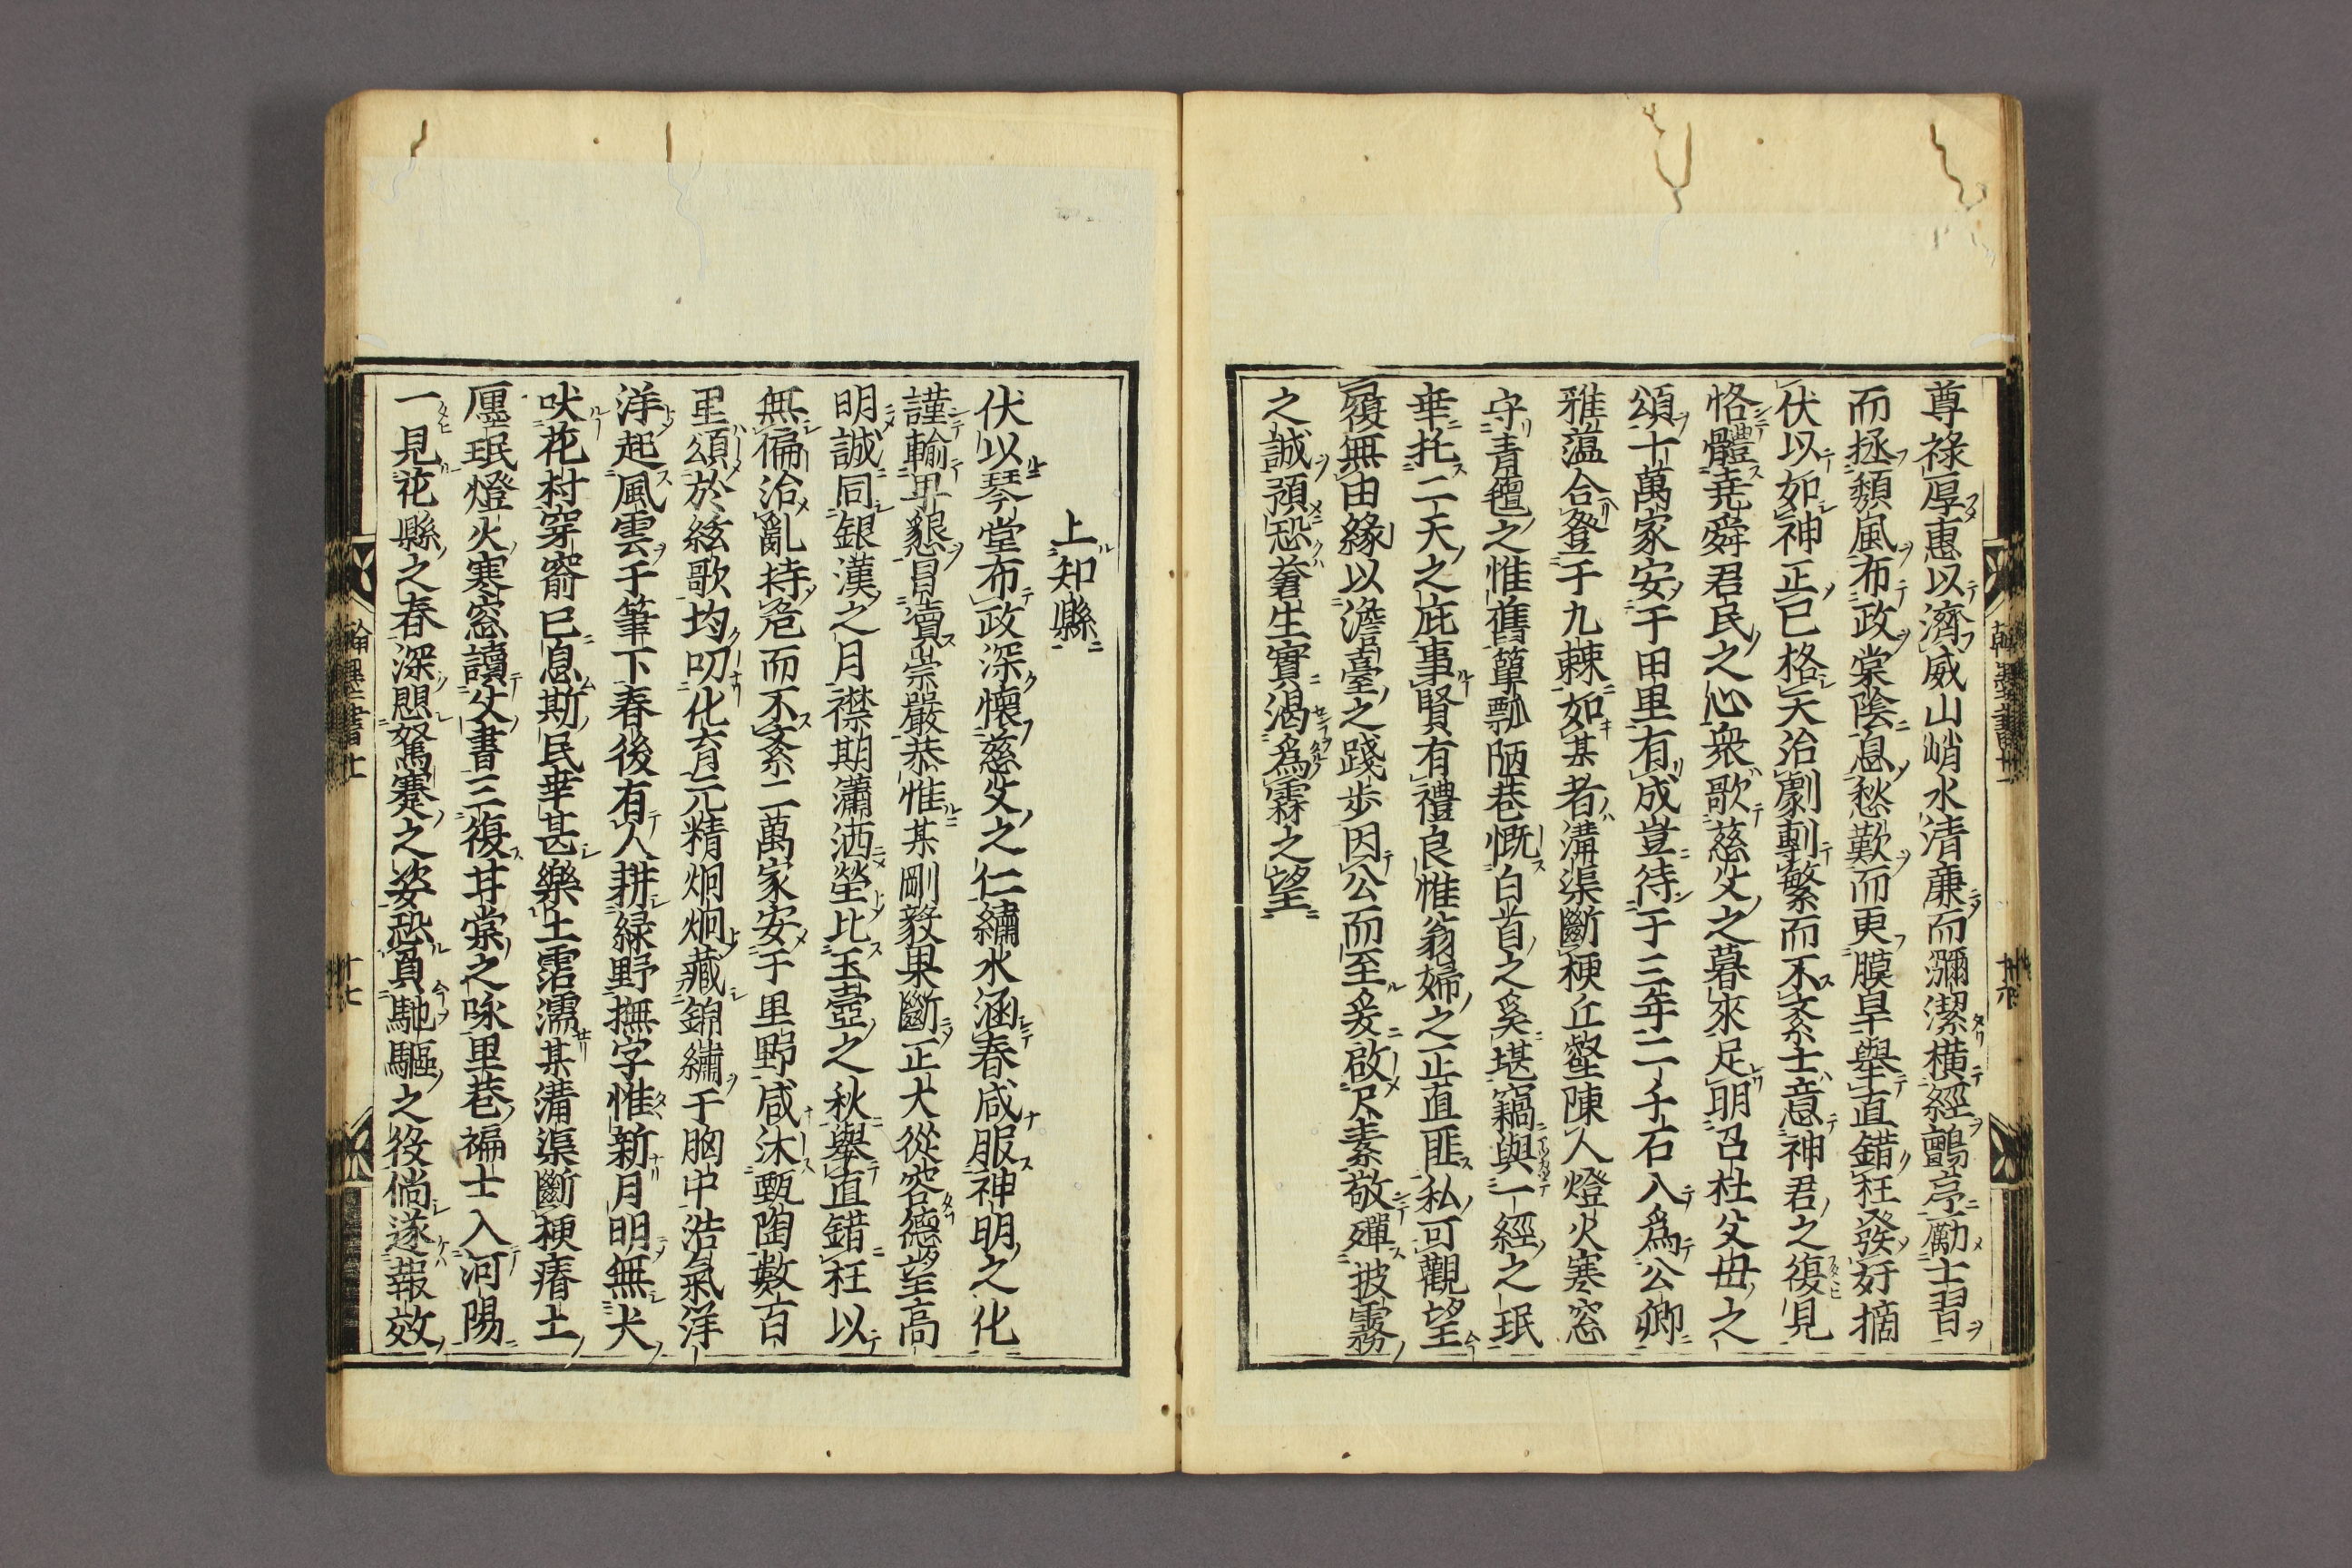 尊祿厚惠以濟威山峭水清廉而瀰潔橫經鸛亭勵士習
而拯頽風布政棠陰息愁歎而更膜旱舉直錯枉發奸摘
伏以如神正已格天治劇剸繁而不紊士意神君之復見
恪體堯舜君民之心衆歌慈父之暮來足明召杜父毋之
頌十萬家安于田里有成豈待于三年二千石入爲公卿
雅薀合登于九棘如某者溝渠斷梗丘壑陳人燈火寒窓
守青氊之惟舊簞瓢陋巷慨白首之奚堪竊與一經之珉
幸托二天之庇事賢有禮良惟翁婦之正直匪私可觀望
履無由緣以澹臺之踐步因公而至爰啟尺素敬殫披霧
之誠預恐蒼生實渴爲霖之望
上知縣
伏以琴堂布政深懷慈父之仁繡水涵春咸服神明之化
謹輸畀懇冒瀆崇嚴恭惟某剛毅果斷正大從容德望高
明誠同銀漢之月襟期瀟洒瑩比玉壺之秋舉直錯枉以
無偏治亂持危而不紊二萬家安于里野咸沐甄陶數百
里頌於絃歌均叨化育元精炯炯藏錦繡于胸中浩氣洋
洋起風雲于筆下春後有人耕緑野撫字惟新月明無犬
吠花村穿窬已息斯民幸甚樂土霑濡某溝渠斷梗瘠土
廛珉燈火寒窓讀父書三復甘棠之咏里巷褊士入河陽
一見花縣之春深慙駑蹇之姿恐負馳驅之役倘遂報效